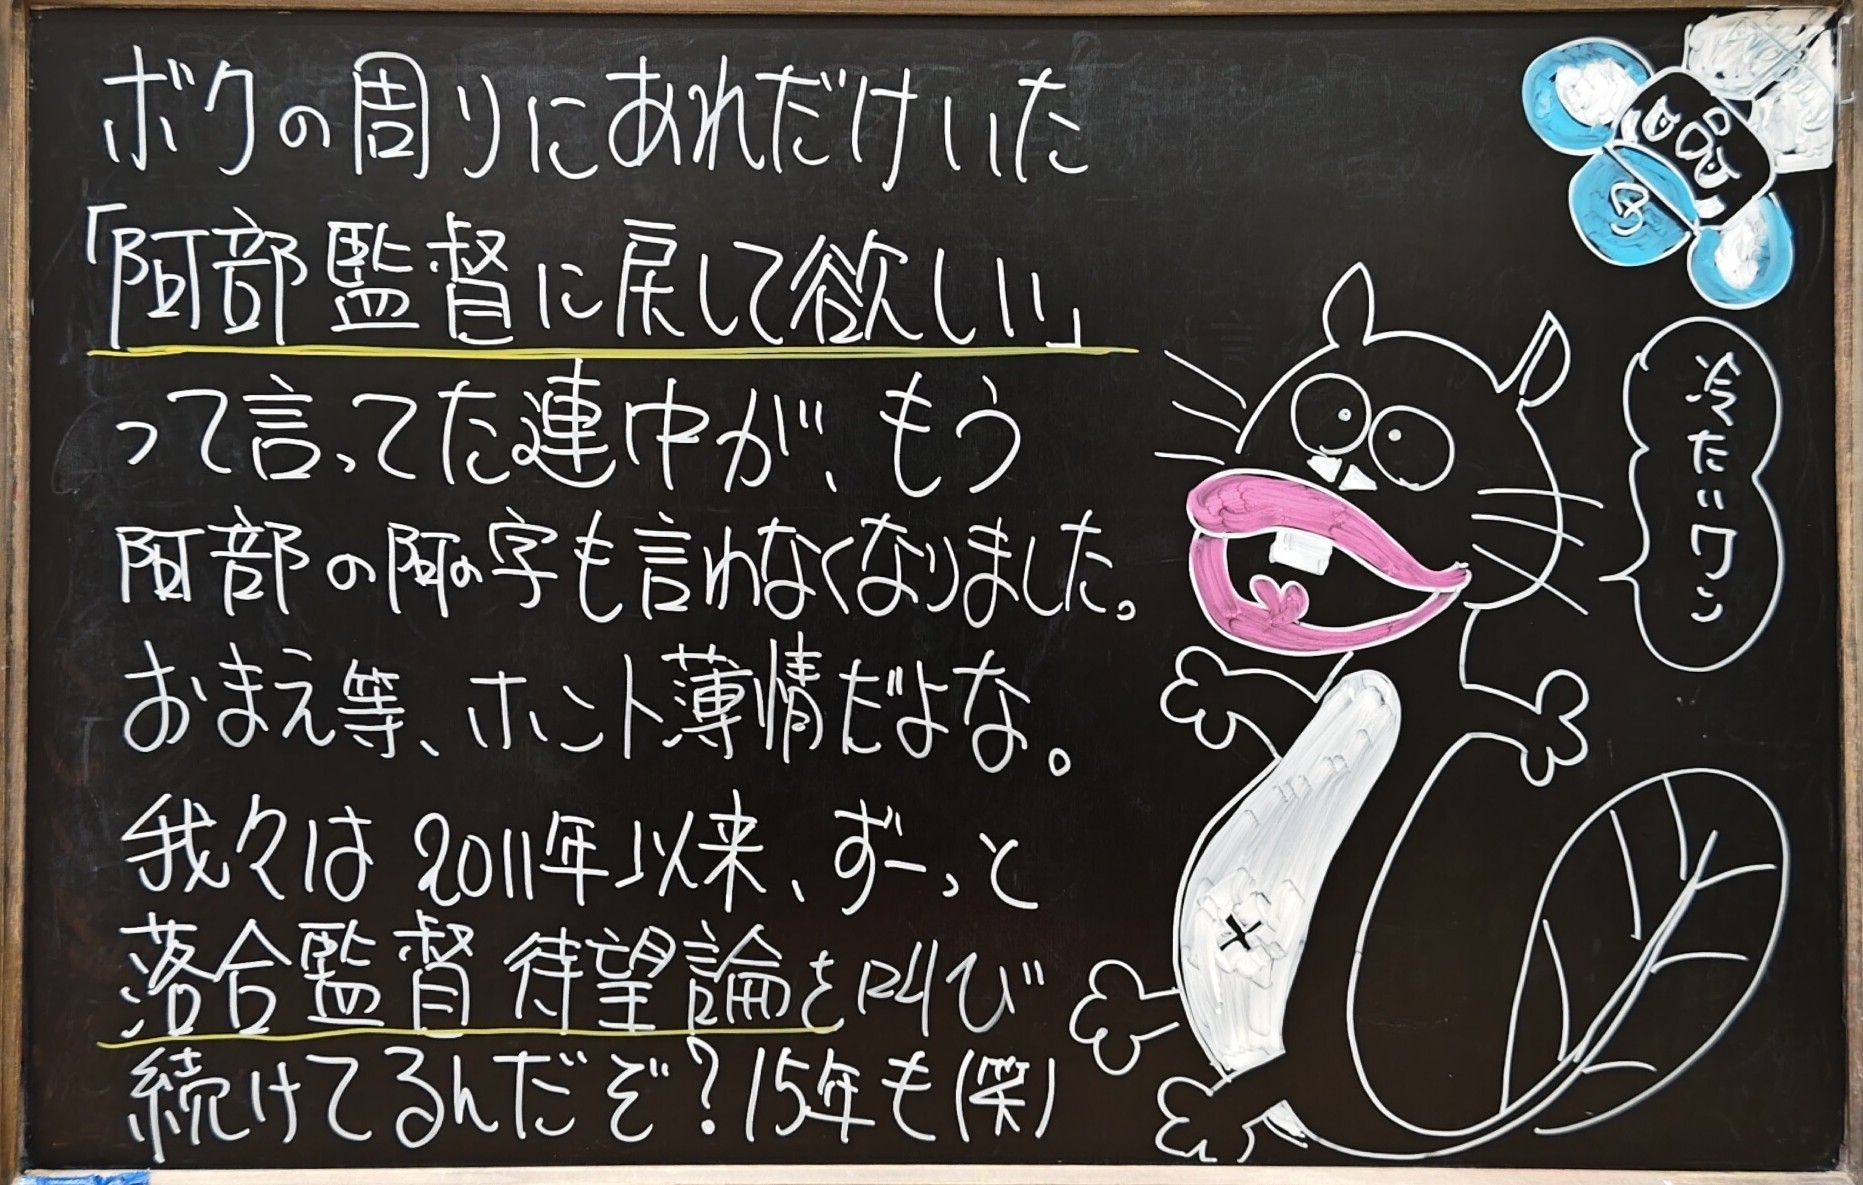 ボクの周りにあれだけいた
「阿部監督に戻して欲しい」
って言ってた連中が、もう
阿部の阿の字も言わなくなりました。
おまえ等、ホント薄情だよな。
我々は2011年以来、ずーっと
落合監督待望論を叫び
続けてるんだぞ?15年も(笑)
冷たいワン